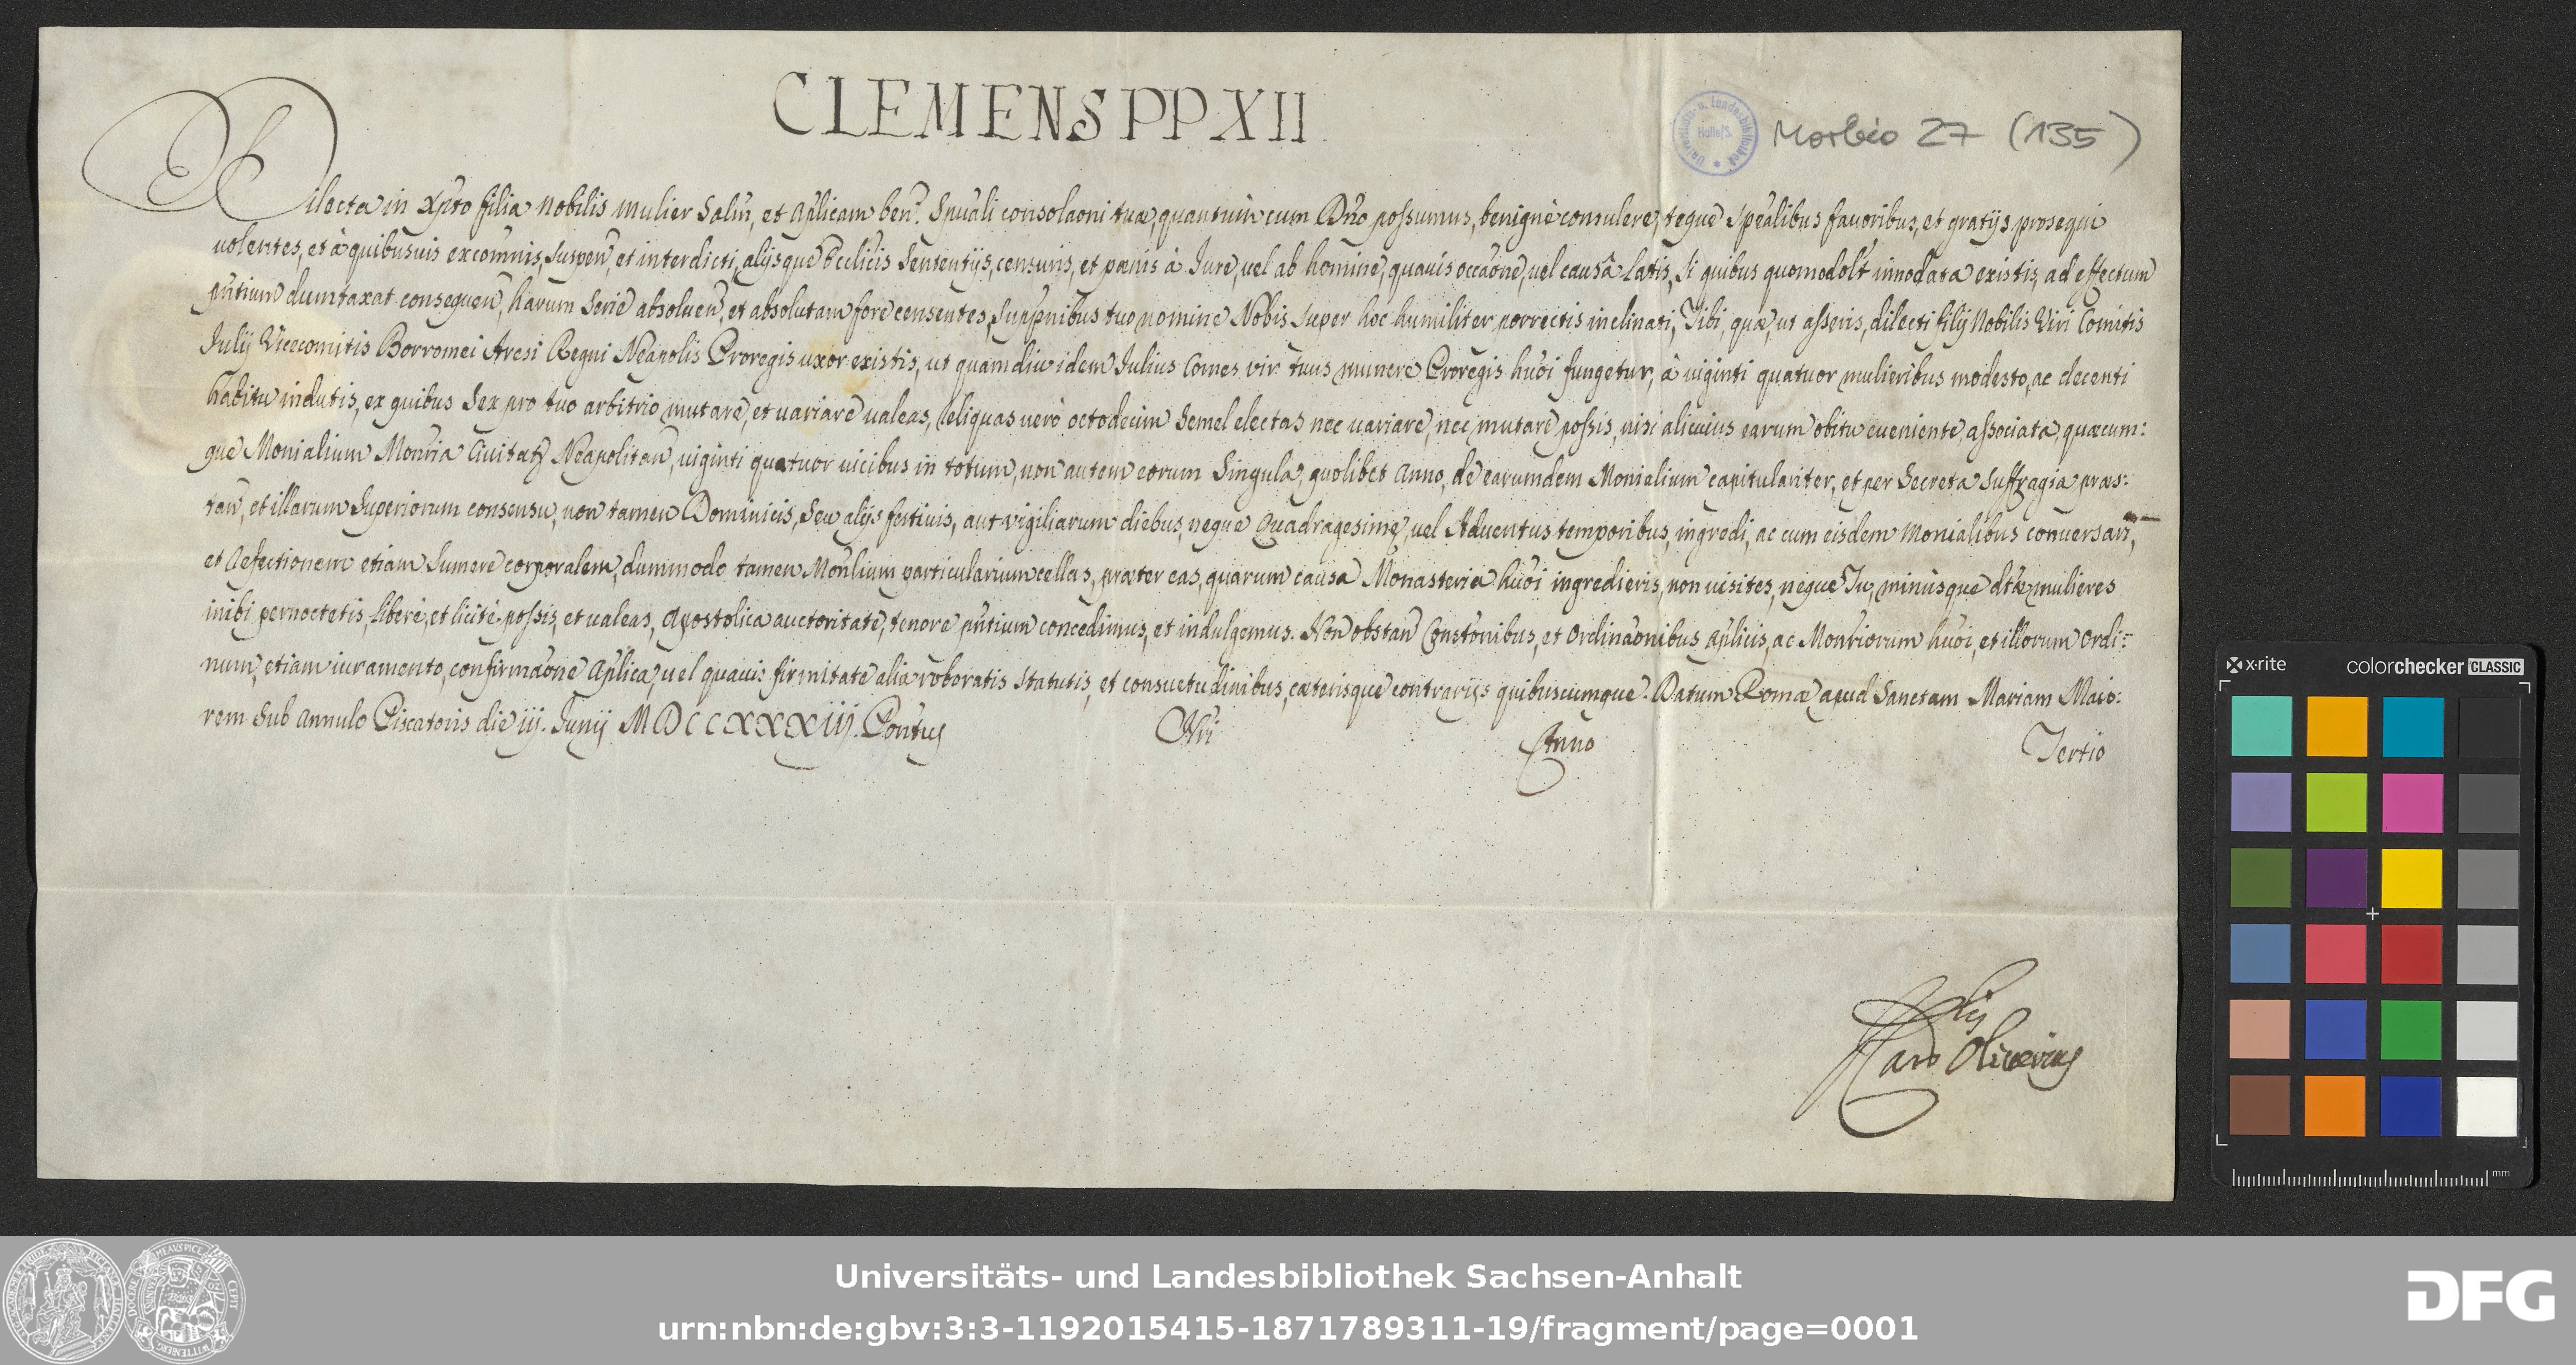 CLEMENS PP XII
Universitäts- u. Landesbibliothek Halle/S.
Morbio 27 (135)
Dilecta in Xp̃to filia Nobilis mulier Salũ, et Ap̃licam ben. Sp̃uali consolaõni tuæ, quantum cum Dño possumus, benignè consulere, teque sp̃ealibus fauoribus, et gratijs prosequi
uolentes, et à quibusuis excom̃nis, suspeñ, et interdicti, alijsque Ecclicis Sententijs, censuris, et pœnis à Jure, uel ab homine, quauis occaõne, uel causâ latis, si quibus quomodolt̃ innodata existis, ad effectum
p̃ntium dumtaxat consequeñ, harum serie absolueñ, et absolutam fore censentes, supp̃nibus tuo nomine Nobis super hoc humiliter porrectis inclinati, Tibi, quæ, ut asseris, dilecti filij Nobilis Viri Comitis
Julij Vicecomitis Borromei Aresi Regni Neapolis Proregis uxor existis, ut quamdiu idem Julius Comes vir tuus munere Proregis hũoi fungetur, à uiginti quatuor mulieribus modesto, ac decenti
habitu indutis, ex quibus sex pro tuo arbitrio mutare, et uariare ualeas, reliquas uerò octodecim semel electas nec uariare, nec mutare possis, nisi alicuius earum obitu eueniente, associata, quæcum:
que Monialium Monr̃ia Ciuitatis Neapolitañ, uiginti quatuor uicibus in totum, non autem eorum singula, quolibet Anno, de earumdem Monialium capitulariter, et per Secreta Suffragia præs:
tañ, et illarum Superiorum consensu, non tamen Dominicis, seu alijs festiuis, aut vigiliarum diebus, neque Quadragesimę, uel Aduentus temporibus, ingredi, ac cum eisdem Monialibus conuersari,
et Refectionem etiam sumere corporalem, dummodo tamen Moñlium particularium cellas, præter eas, quarum causa Monasteria hũoi ingredieris, non uisites, neque Tu, minusque dtæ mulieres
inibi pernoctetis, liberè, et licitè possis, et ualeas, Apostolica auctoritate, tenore p̃ntium concedimus, et indulgemus. Non obstañ Constõnibus, et Ordinaõnibus Ap̃licis, ac Monr̃iorum hũoi, et illorum Ordi:
num, etiam iuramento, confirmaõne Ap̃lica, uel quauis firmitate alia roboratis statutis, et consuetudinibus, cæterisque contrarijs quibuscumque. Datum Romæ apud Sanctam Mariam Maio:
rem sub Annulo Piscatoris die iij. Junij MDCCXXXIII. Pontus Nri Anno Tertio
Oliuerius
x·rite colorchecker CLASSIC
mm
Universitäts- und Landesbibliothek Sachsen-Anhalt
urn:nbn:de:gbv:3:3-1192015415-1871789311-19/fragment/page=0001
DFG